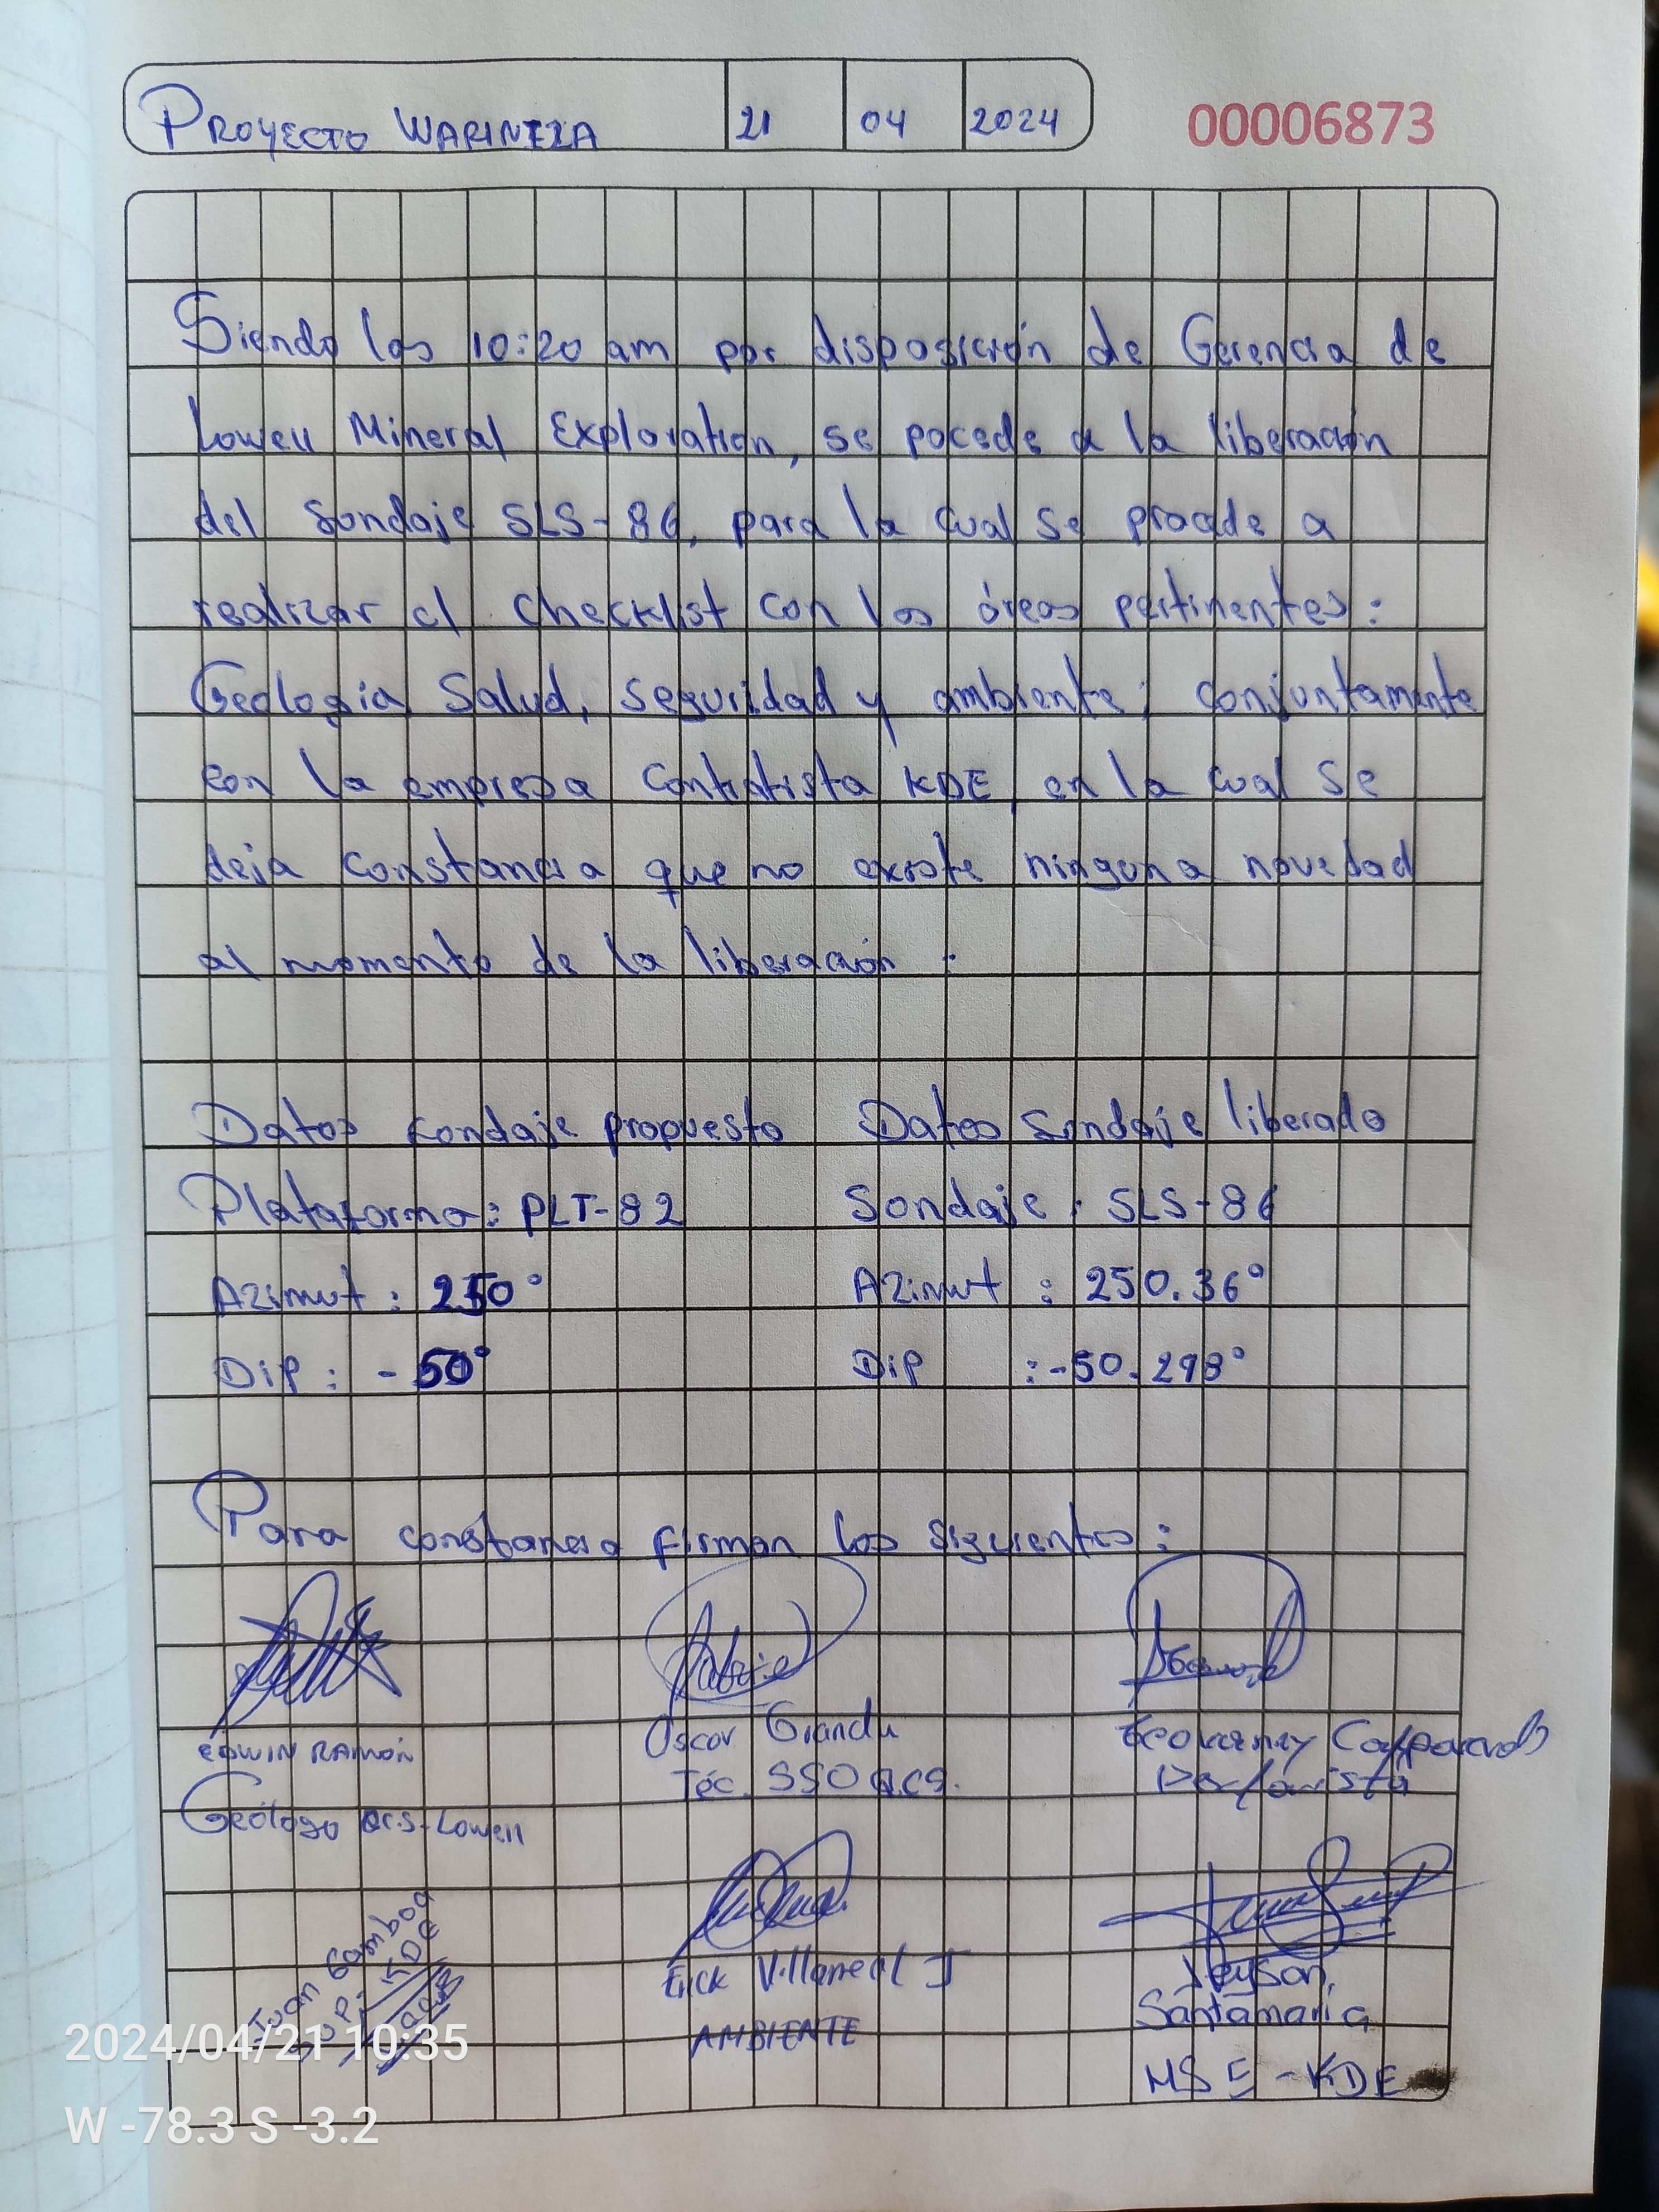 PROYECTO WARINTZA 21 04 2024
00006873
Siendo las 10:20 am por disposición de Gerencia de
Lowell Mineral Exploration, se pocede a la liberación
del Sondaje SLS-86, para la cual se procede a
realizar el checklist con las áreas pertinentes:
Geología, Salud, seguridad y ambiente; conjuntamente
con la empresa Contratista KDE, en la cual se
deja constancia que no existe ninguna novedad
al momento de la liberación.
Datos sondaje propuesto Datos Sondaje liberado
Plataforma: PLT-82 Sondaje: SLS-86
Azimut: 250° Azimut: 250.36°
Dip: -50° Dip: -50.298°
Para constancia firman los siguientes:
EDWIN RAMÓN Oscar Granda
Téc. SSO Q.C.S. Perforista
Geólogo Q.C.S-Lowell
Juan Gamboa
SUP. KDE
Erick Villarreal J
AMBIENTE
Jeyson
Santamaria
HSE - KDE
2024/04/21 10:35
W -78.3 S -3.2